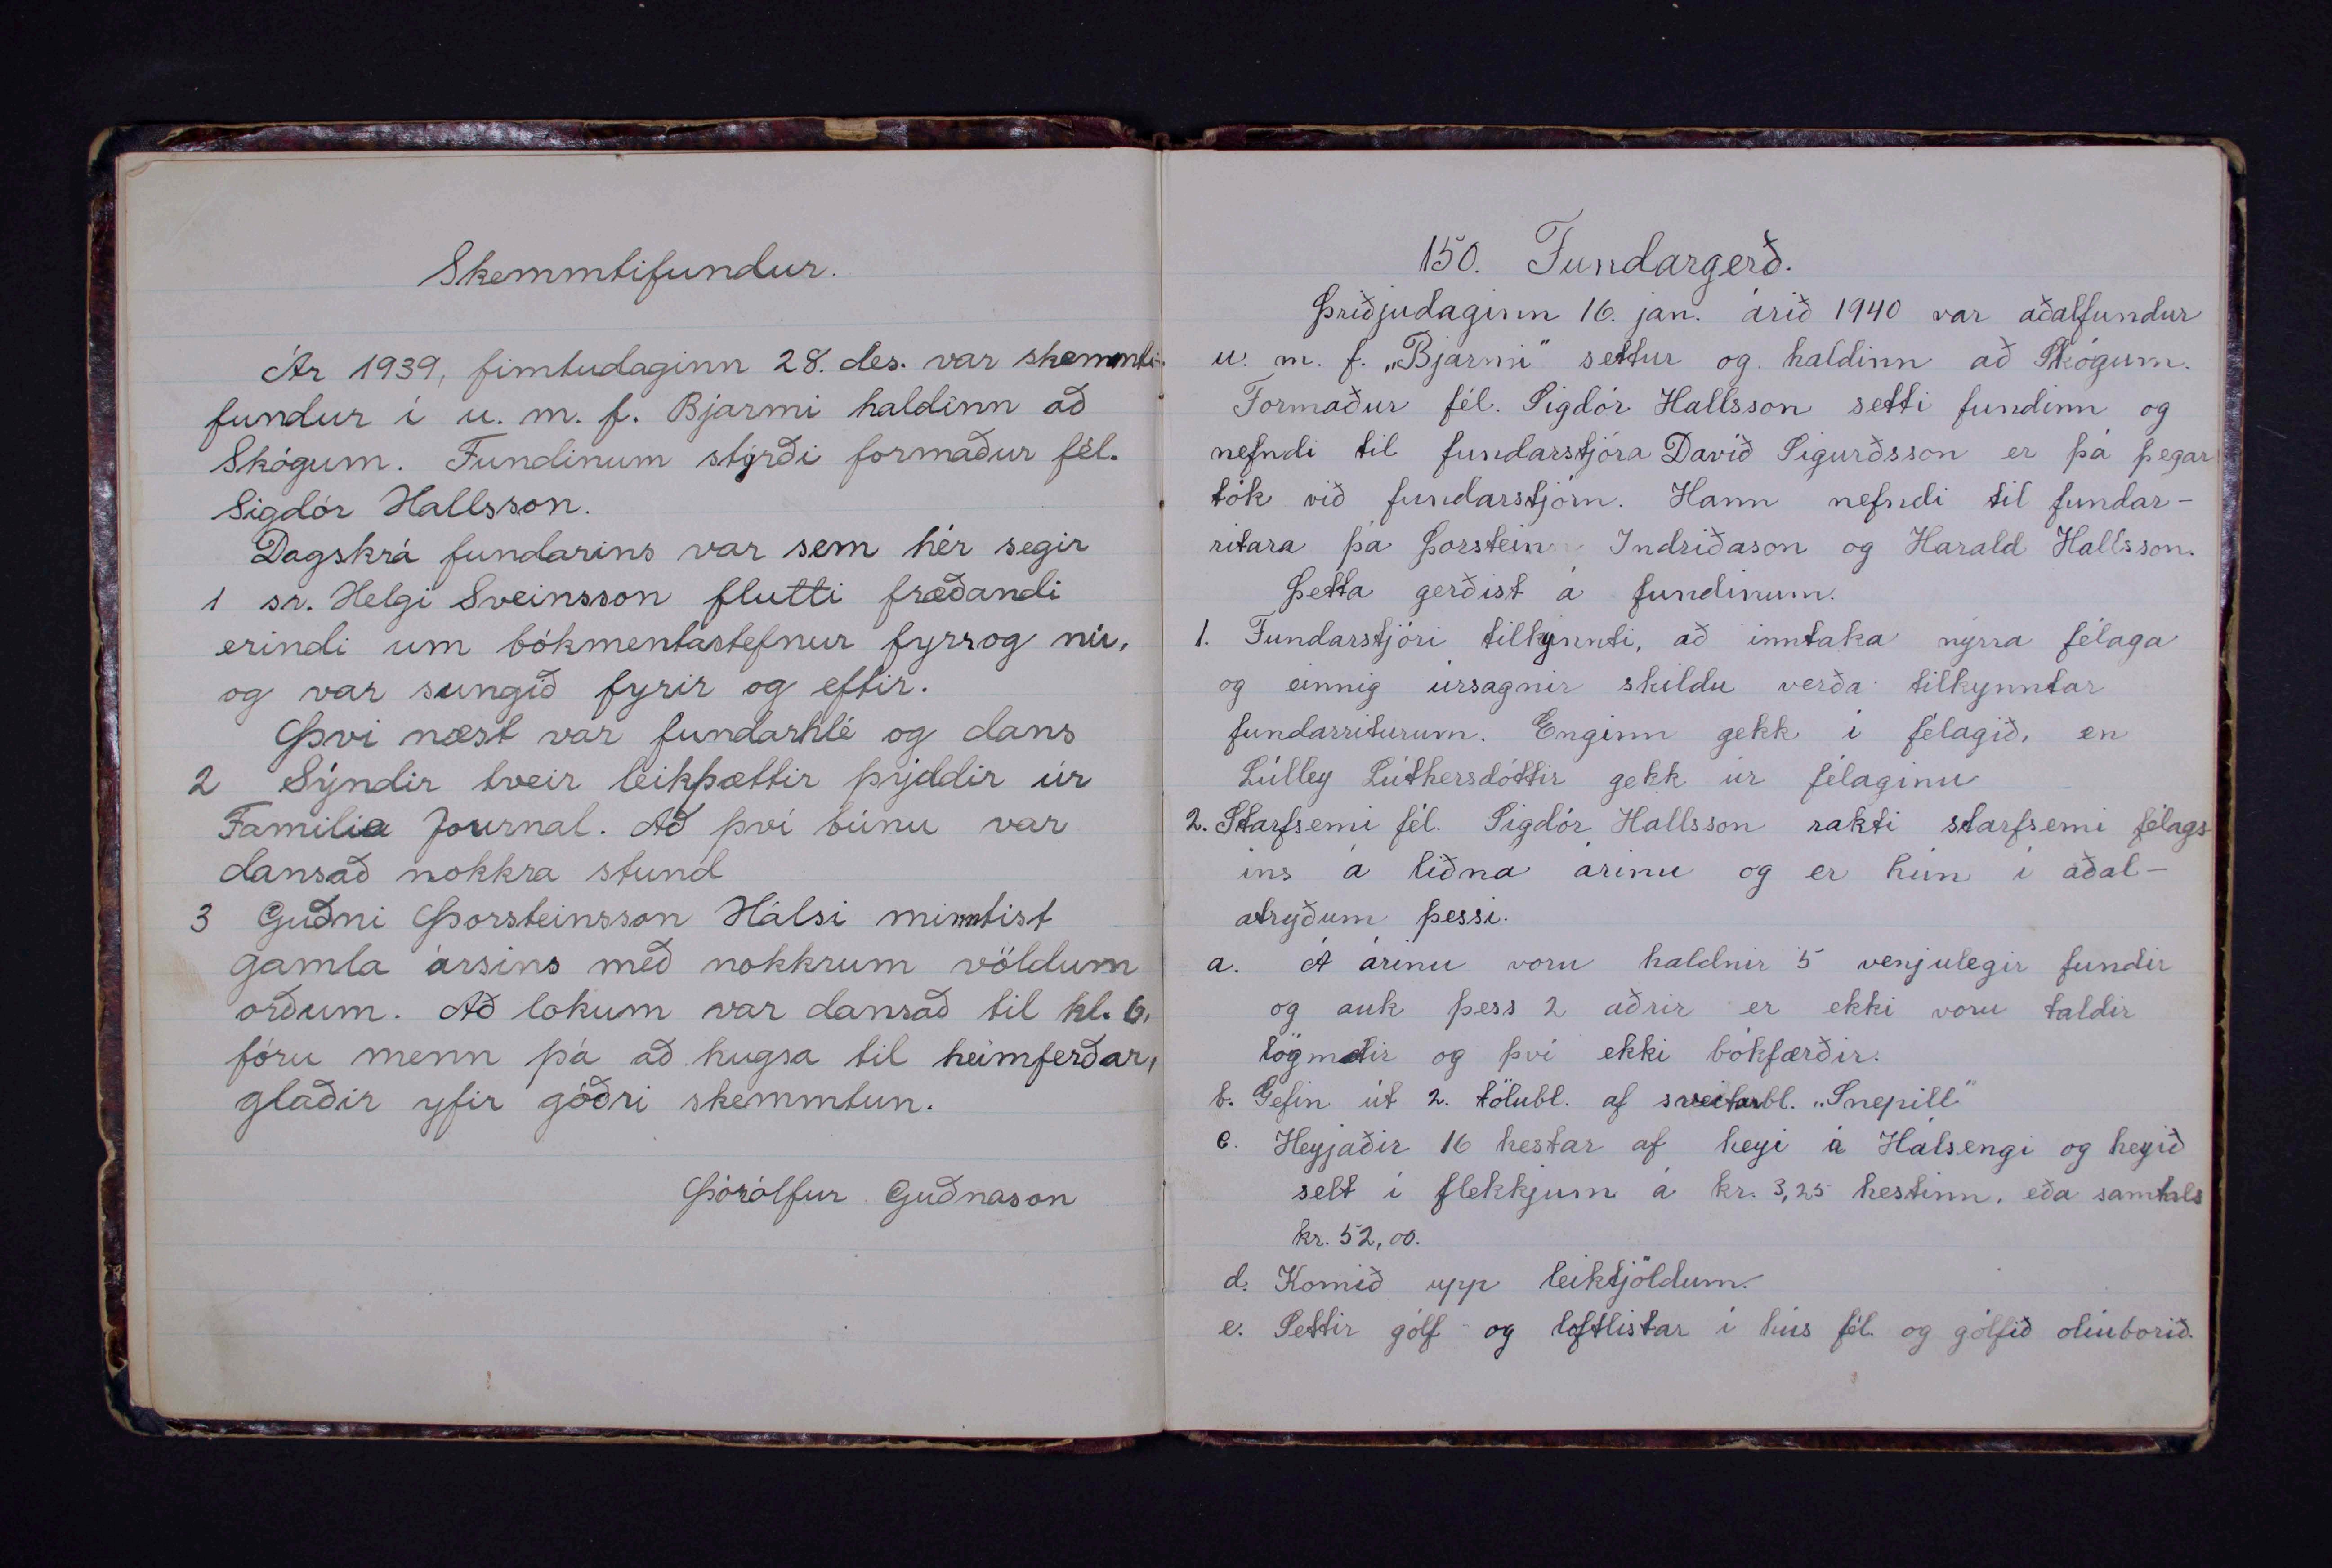 Skemmtifundur.
Ár 1939, fimtudaginn 28. des. var skemmti-
fundur í u. m. f. Bjarmi haldinn að
Skógum. Fundinum stýrði formaður fél.
Sigdór Hallsson.
Dagskrá fundarins var sem hér segir
1 sr. Helgi Sveinsson flutti fræðandi
erindi um bókmentastefnur fyrr og nú,
og var sungið fyrir og eftir.
Því næst var fundarhlé og dans
2 Sýndir tveir leikþættir þýddir úr
Familia Journal. Að því búnu var
dansað nokkra stund
3 Guðni Þorsteinsson Hálsi minntist
gamla ársins með nokkrum völdum
orðum. Að lokum var dansað til kl. 6,
fóru menn þá að hugsa til heimferðar,
glaðir yfir góðri skemmtun.
Þórólfur Guðnason
150. Fundargerð.
Þriðjudaginn 16. jan. árið 1940 var aðalfundur
u. m. f. „Bjarmi" settur og haldinn að Skógum.
Formaður fél. Sigdór Hallsson setti fundinn og
nefndi til fundarstjóra Davíð Sigurðsson er þá þegar
tók við fundarstjórn. Hann nefndi til fundar-
ritara þá Þorstein Indriðason og Harald Hallsson.
Þetta gerðist á fundinum.
1. Fundarstjóri tilkynnti, að inntaka nýrra félaga
og einnig úrsagnir skildu verða tilkynntar
fundarriturum. Enginn gekk í félagið, en
Lúlley Lúthersdóttir gekk úr félaginu
2. Starfsemi fél. Sigdór Hallsson rakti starfsemi félags-
ins á liðna árinu og er hún í aðal-
atryðum þessi.
a. Á árinu voru haldnir 5 venjulegir fundir
og auk þess 2 aðrir er ekki voru taldir
lögmætir og því ekki bókfærðir.
b. Gefin út 2. tölubl. af sveitarbl. „Snepill"
c. Heyjaðir 16 hestar af heyi á Hálsengi og heyið
selt í flekkjum á kr. 3,25 hestinn, eða samtals
kr. 52,00.
d. Komið upp leiktjöldum.
e. Settir gólf- og loftlistar í hús fél. og gólfið olíuborið.